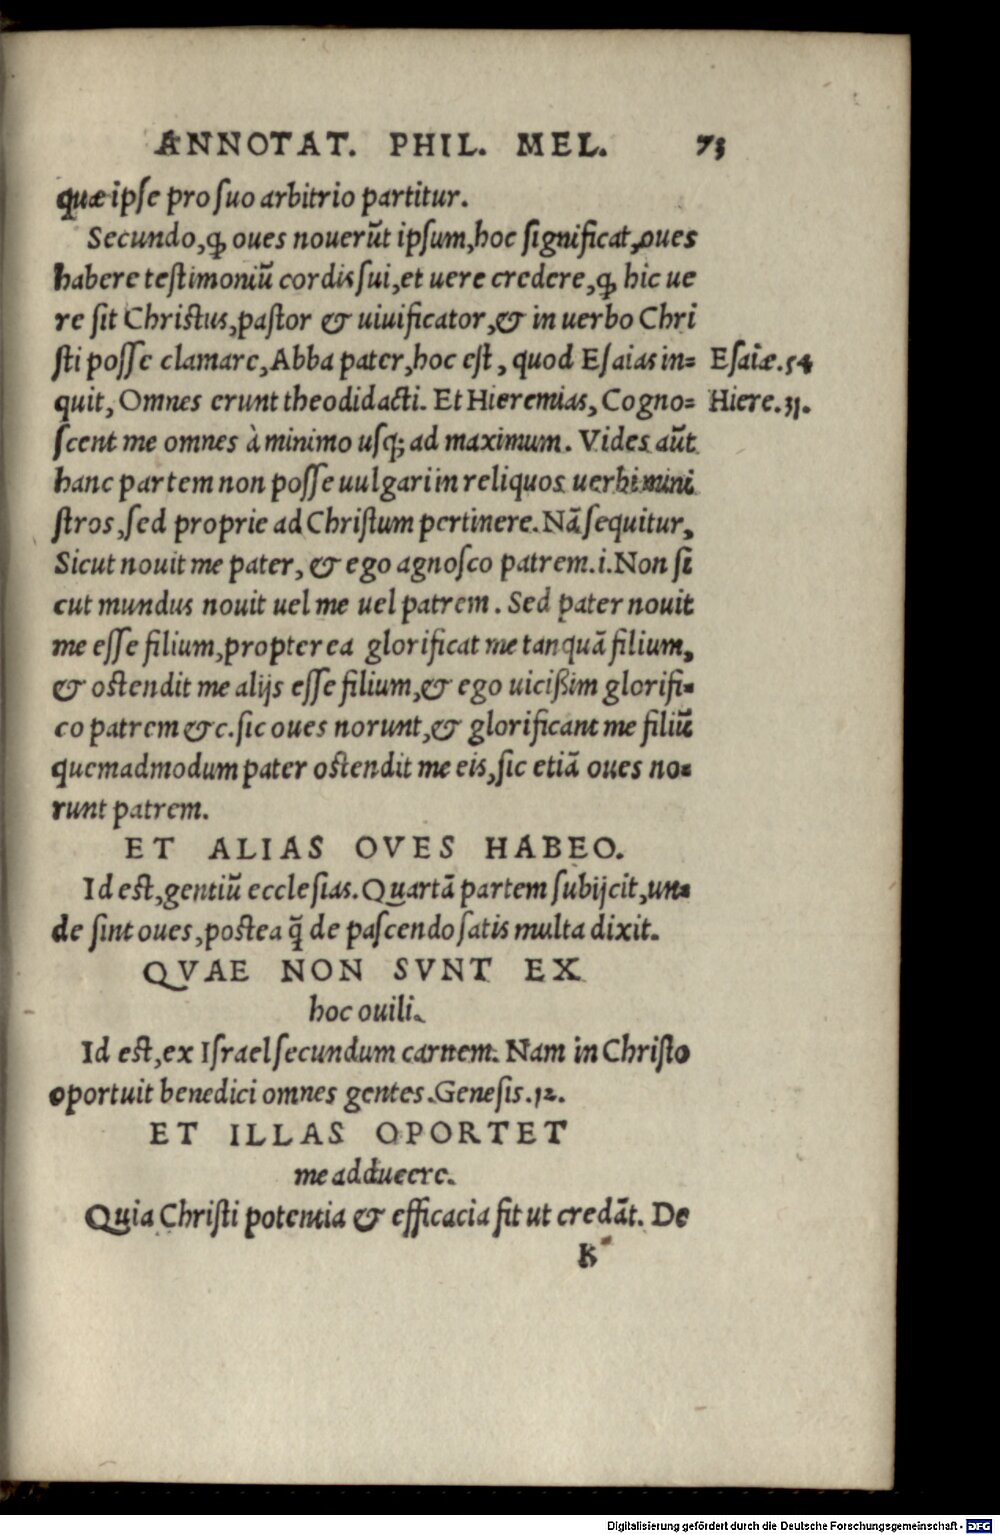 ANNOTAT. PHIL. MEL. 73
quæ ipſe pro ſuo arbitrio partitur.
Secundo, ꝙ oues nouerũt ipſum, hoc ſignificat, oues
habere teſtimoniũ cordis ſui, et uere credere, ꝙ hic ue
re ſit Chriſtus, paſtor & uiuificator, & in uerbo Chri
ſti poſſe clamare, Abba pater, hoc eſt, quod Eſaias in= Eſaiæ. 54
quit, Omnes erunt theodidacti. Et Hieremias, Cogno= Hiere. 31.
ſcent me omnes à minimo uſq; ad maximum. Vides aũt
hanc partem non poſſe uulgari in reliquos uerbi mini
ſtros, ſed proprie ad Chriſtum pertinere. Nã ſequitur,
Sicut nouit me pater, & ego agnoſco patrem. i. Non ſi
cut mundus nouit uel me uel patrem. Sed pater nouit
me eſſe filium, propterea glorificat me tanquã filium,
& oſtendit me alijs eſſe filium, & ego uicißim glorifi=
co patrem &c. ſic oues norunt, & glorificant me filiũ
quemadmodum pater oſtendit me eis, ſic etiã oues no=
runt patrem.
ET ALIAS OVES HABEO.
Id eſt, gentiũ eccleſias. Quartã partem ſubijcit, un=
de ſint oues, poſtea q̃ de paſcendo ſatis multa dixit.
QVAE NON SVNT EX
hoc ouili.
Id eſt, ex Iſrael ſecundum carnem. Nam in Chriſto
oportuit benedici omnes gentes. Geneſis. 12.
ET ILLAS OPORTET
me adducere.
Quia Chriſti potentia & efficacia fit ut credãt. De
K
Digitalisierung gefördert durch die Deutsche Forschungsgemeinschaft - DFG